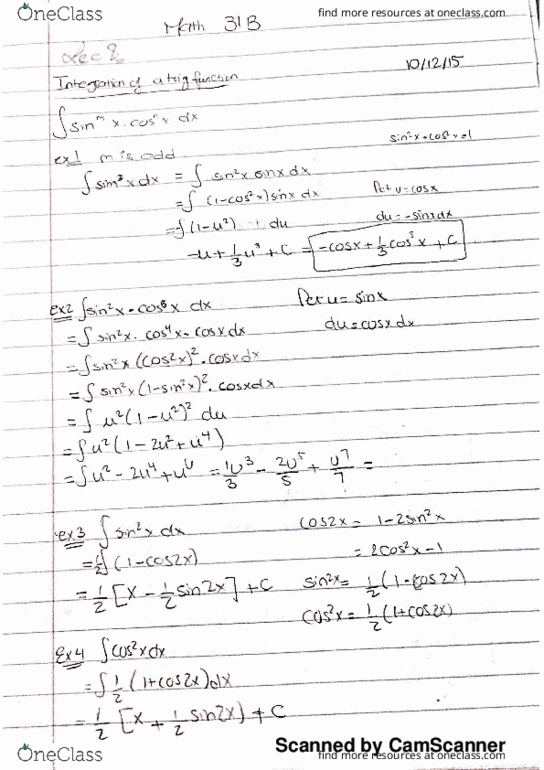 OneClass
find more resources at oneclass.com
Math 31B
Lec 8
10/12/15
Integration of a trig function
∫ sinᵐ x · cosⁿ x dx
sin²x + cos²x = 1
ex1 m is odd
∫ sin³ x dx = ∫ sin²x sinx dx
= ∫ (1-cos²x) sinx dx
let u = cosx
= ∫ (1-u²) du
du = -sinx dx
-u + 1/3 u³ + C = -cosx + 1/3 cos³ x + C
ex2 ∫ sin²x · cos⁵ x dx
let u = sinx
= ∫ sin²x · cos⁴x · cosx dx
du = cosx dx
= ∫ sin²x (cos²x)² · cosx dx
= ∫ sin²x (1-sin²x)² · cosx dx
= ∫ u² (1-u²)² du
= ∫ u² (1-2u² + u⁴)
= ∫ u² - 2u⁴ + u⁶ = 1u³/3 - 2u⁵/5 + u⁷/7 =
ex3 ∫ sin²x dx
cos2x = 1-2sin²x
= ½ ∫ (1-cos2x)
= 2cos²x-1
= 1/2 [x - 1/2 sin2x] + C
sin²x = 1/2 (1-cos2x)
cos²x = 1/2 (1+cos2x)
Ex4 ∫ cos²x dx
= ∫ 1/2 (1+cos2x) dx
= 1/2 [x + 1/2 sin2x) + C
Scanned by CamScanner
OneClass
find more resources at oneclass.com